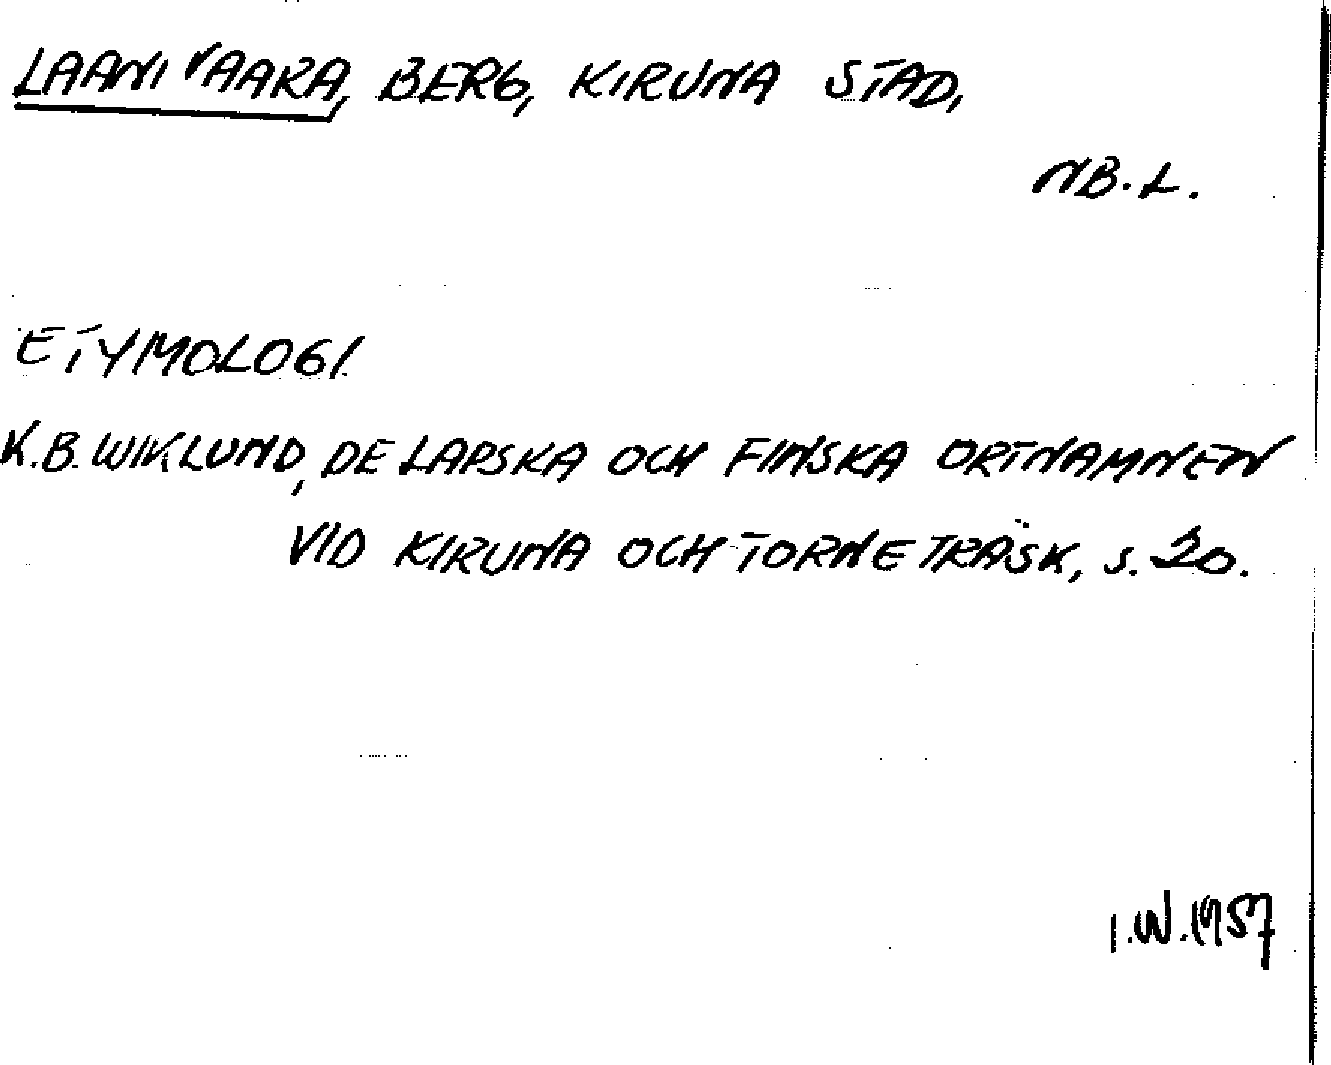 LAANIVAARA, BERG, KIRUNA STAD,
NB.L.
ETYMOLOGI.
K.B. WIKLUND, DE LAPSKA OCH FINSKA ORTNAMNEN
VID KIRUNA OCH TORNETRÄSK, S. 20.
I.W.1957